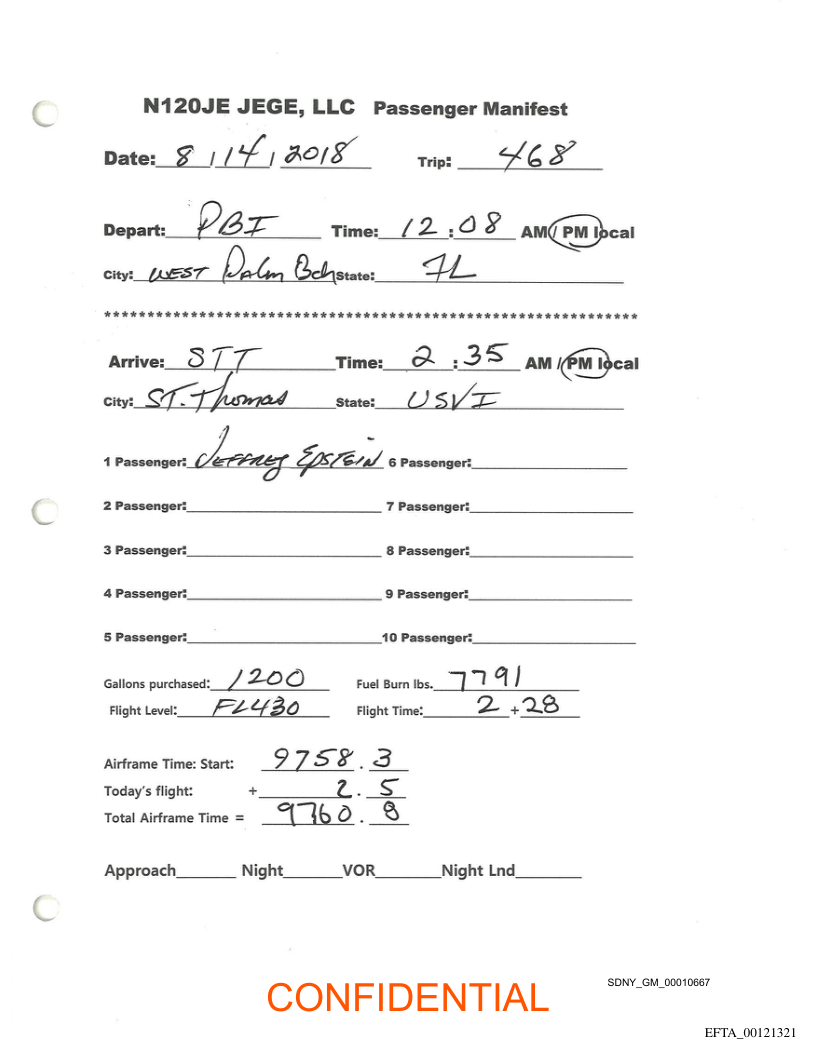 N120JE JEGE, LLC Passenger Manifest
Date: 8 / 14 / 2018 Trip: 468
Depart: PBI Time: 12 : 08 AM / PM local
City: WEST Palm Bch State: FL
*************************************************************
Arrive: STT Time: 2 : 35 AM / PM local
City: ST. Thomas State: USVI
1 Passenger: Jeffrey Epstein 6 Passenger:
2 Passenger: 7 Passenger:
3 Passenger: 8 Passenger:
4 Passenger: 9 Passenger:
5 Passenger: 10 Passenger:
Gallons purchased: 1200 Fuel Burn lbs. 7791
Flight Level: FL430 Flight Time: 2 + 28
Airframe Time: Start: 9758 . 3
Today's flight: + 2 . 5
Total Airframe Time = 9760 . 8
Approach Night VOR Night Lnd
SDNY_GM_00010667
CONFIDENTIAL
EFTA_00121321